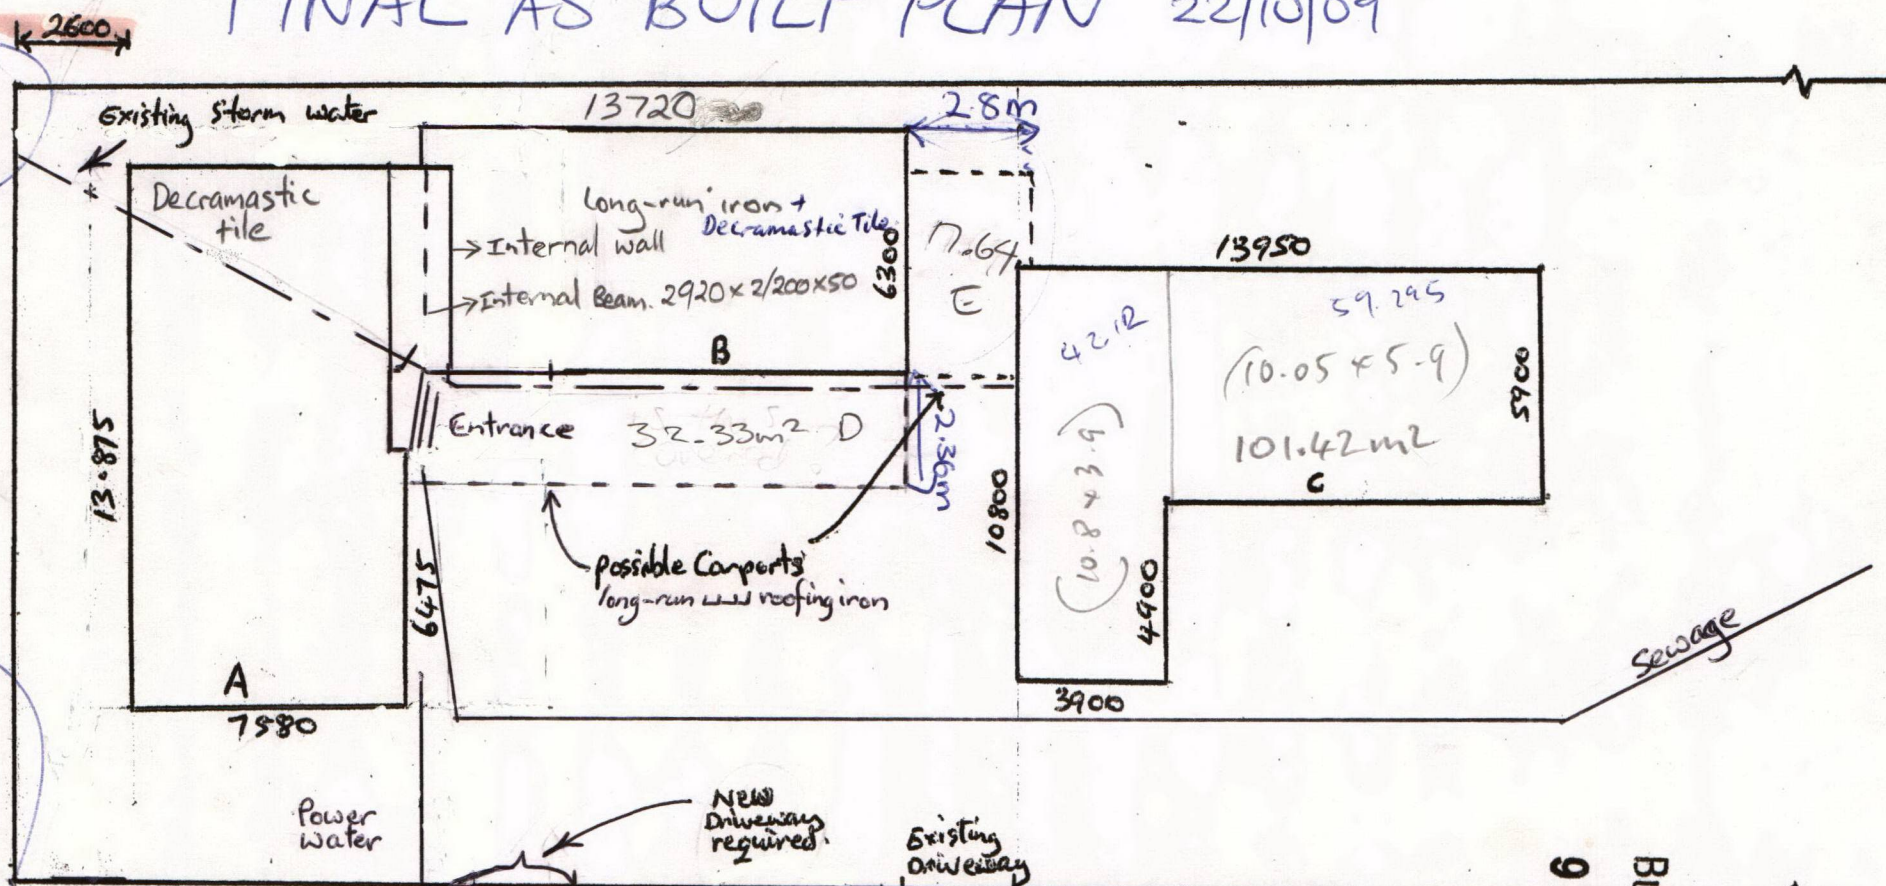 FINAL AS BUILT PLAN 22/10/09
2600
Existing storm water
13720
2.8m
Decramastic
tile
Long-run iron +
Decramastic Tile
→Internal wall
→Internal Beam. 2920 x 2/200x50
6300
17.64
E
13950
B
42.12
59.295
(10.05 x 5.9)
101.42m2
C
5900
Entrance
32.33m² D
2.36m
13.875
10800
(10.8 x 3.9)
4900
possible Carports
long-run roofing iron
6475
A
7580
3900
Sewage
Power
water
New
Driveway
required.
Existing
Driveway
9